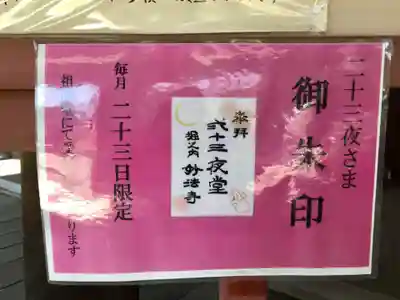 二十三夜さま
御朱印
奉拝
弐十三夜堂
堀之内 妙法寺
毎月 二十三日限定
祖 にて受 ります